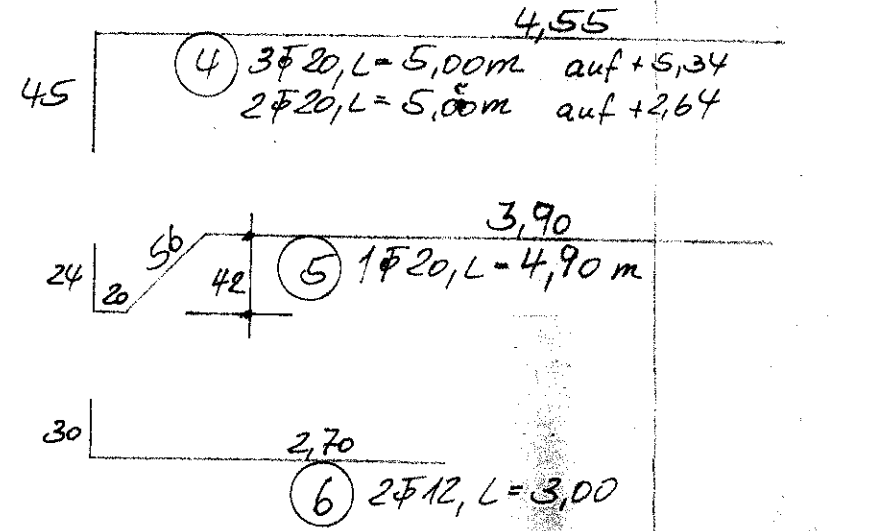 4,55
45
④ 3Φ20, L= 5,00m auf +5,34
2Φ20, L= 5,00m auf +2,64
3,90
24 20 56 42
⑤ 1Φ20, L= 4,90 m
30
2,70
⑥ 2Φ12, L= 3,00